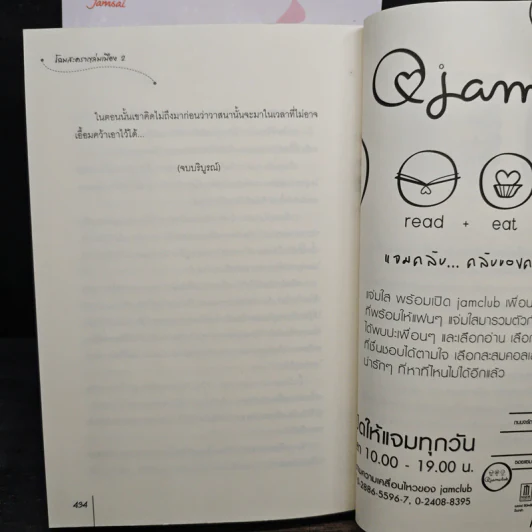 Jamsai
โฉมสะคราญล่มเมือง 2
ในตอนนั้นเขาคิดไม่ถึงมาก่อนว่าวาสนานั้นจะมาในเวลาที่ไม่อาจ
เอื้อมคว้าเอาไว้ได้...
(จบบริบูรณ์)
434
jam
read + eat
แจมคลับ... คลับของค
แจ่มใส พร้อมเปิด jamclub เพื่อน
ที่พร้อมให้แฟนๆ แจ่มใสมารวมตัวก
ได้พบปะเพื่อนๆ และเลือกอ่าน เลือก
ที่ชื่นชอบได้ตามใจ เลือกสะสมคอลเล
น่ารักๆ ที่หาที่ไหนไม่ได้อีกแล้ว
ดให้แจมทุกวัน
10.00 - 19.00 น.
ความเคลื่อนไหวของ jamclub
0-2886-5596-7, 0-2408-8395